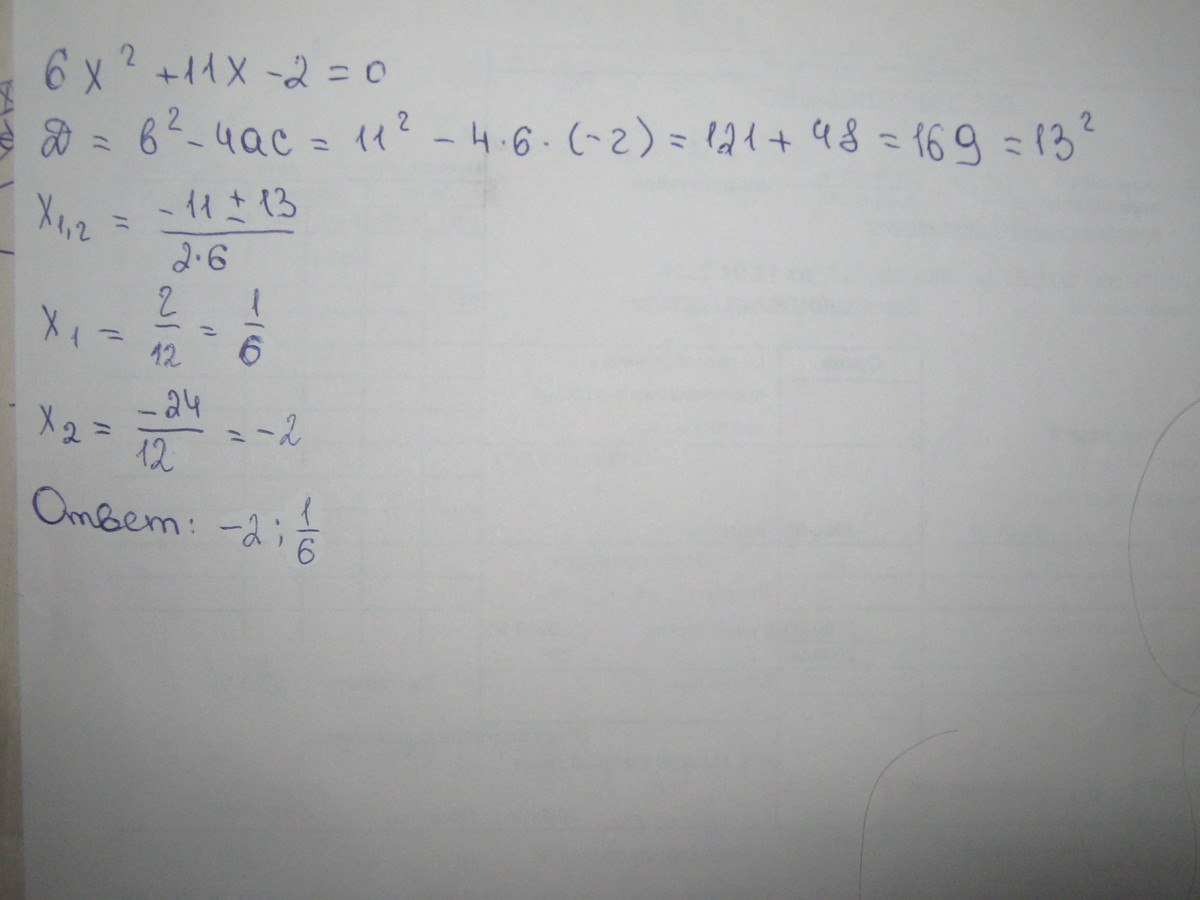 6x² + 11x - 2 = 0
D = b² - 4ac = 11² - 4·6·(-2) = 121 + 48 = 169 = 13²
x₁,₂ = (-11 ± 13)/(2·6)
x₁ = 2/12 = 1/6
x₂ = -24/12 = -2
Ответ: -2; 1/6